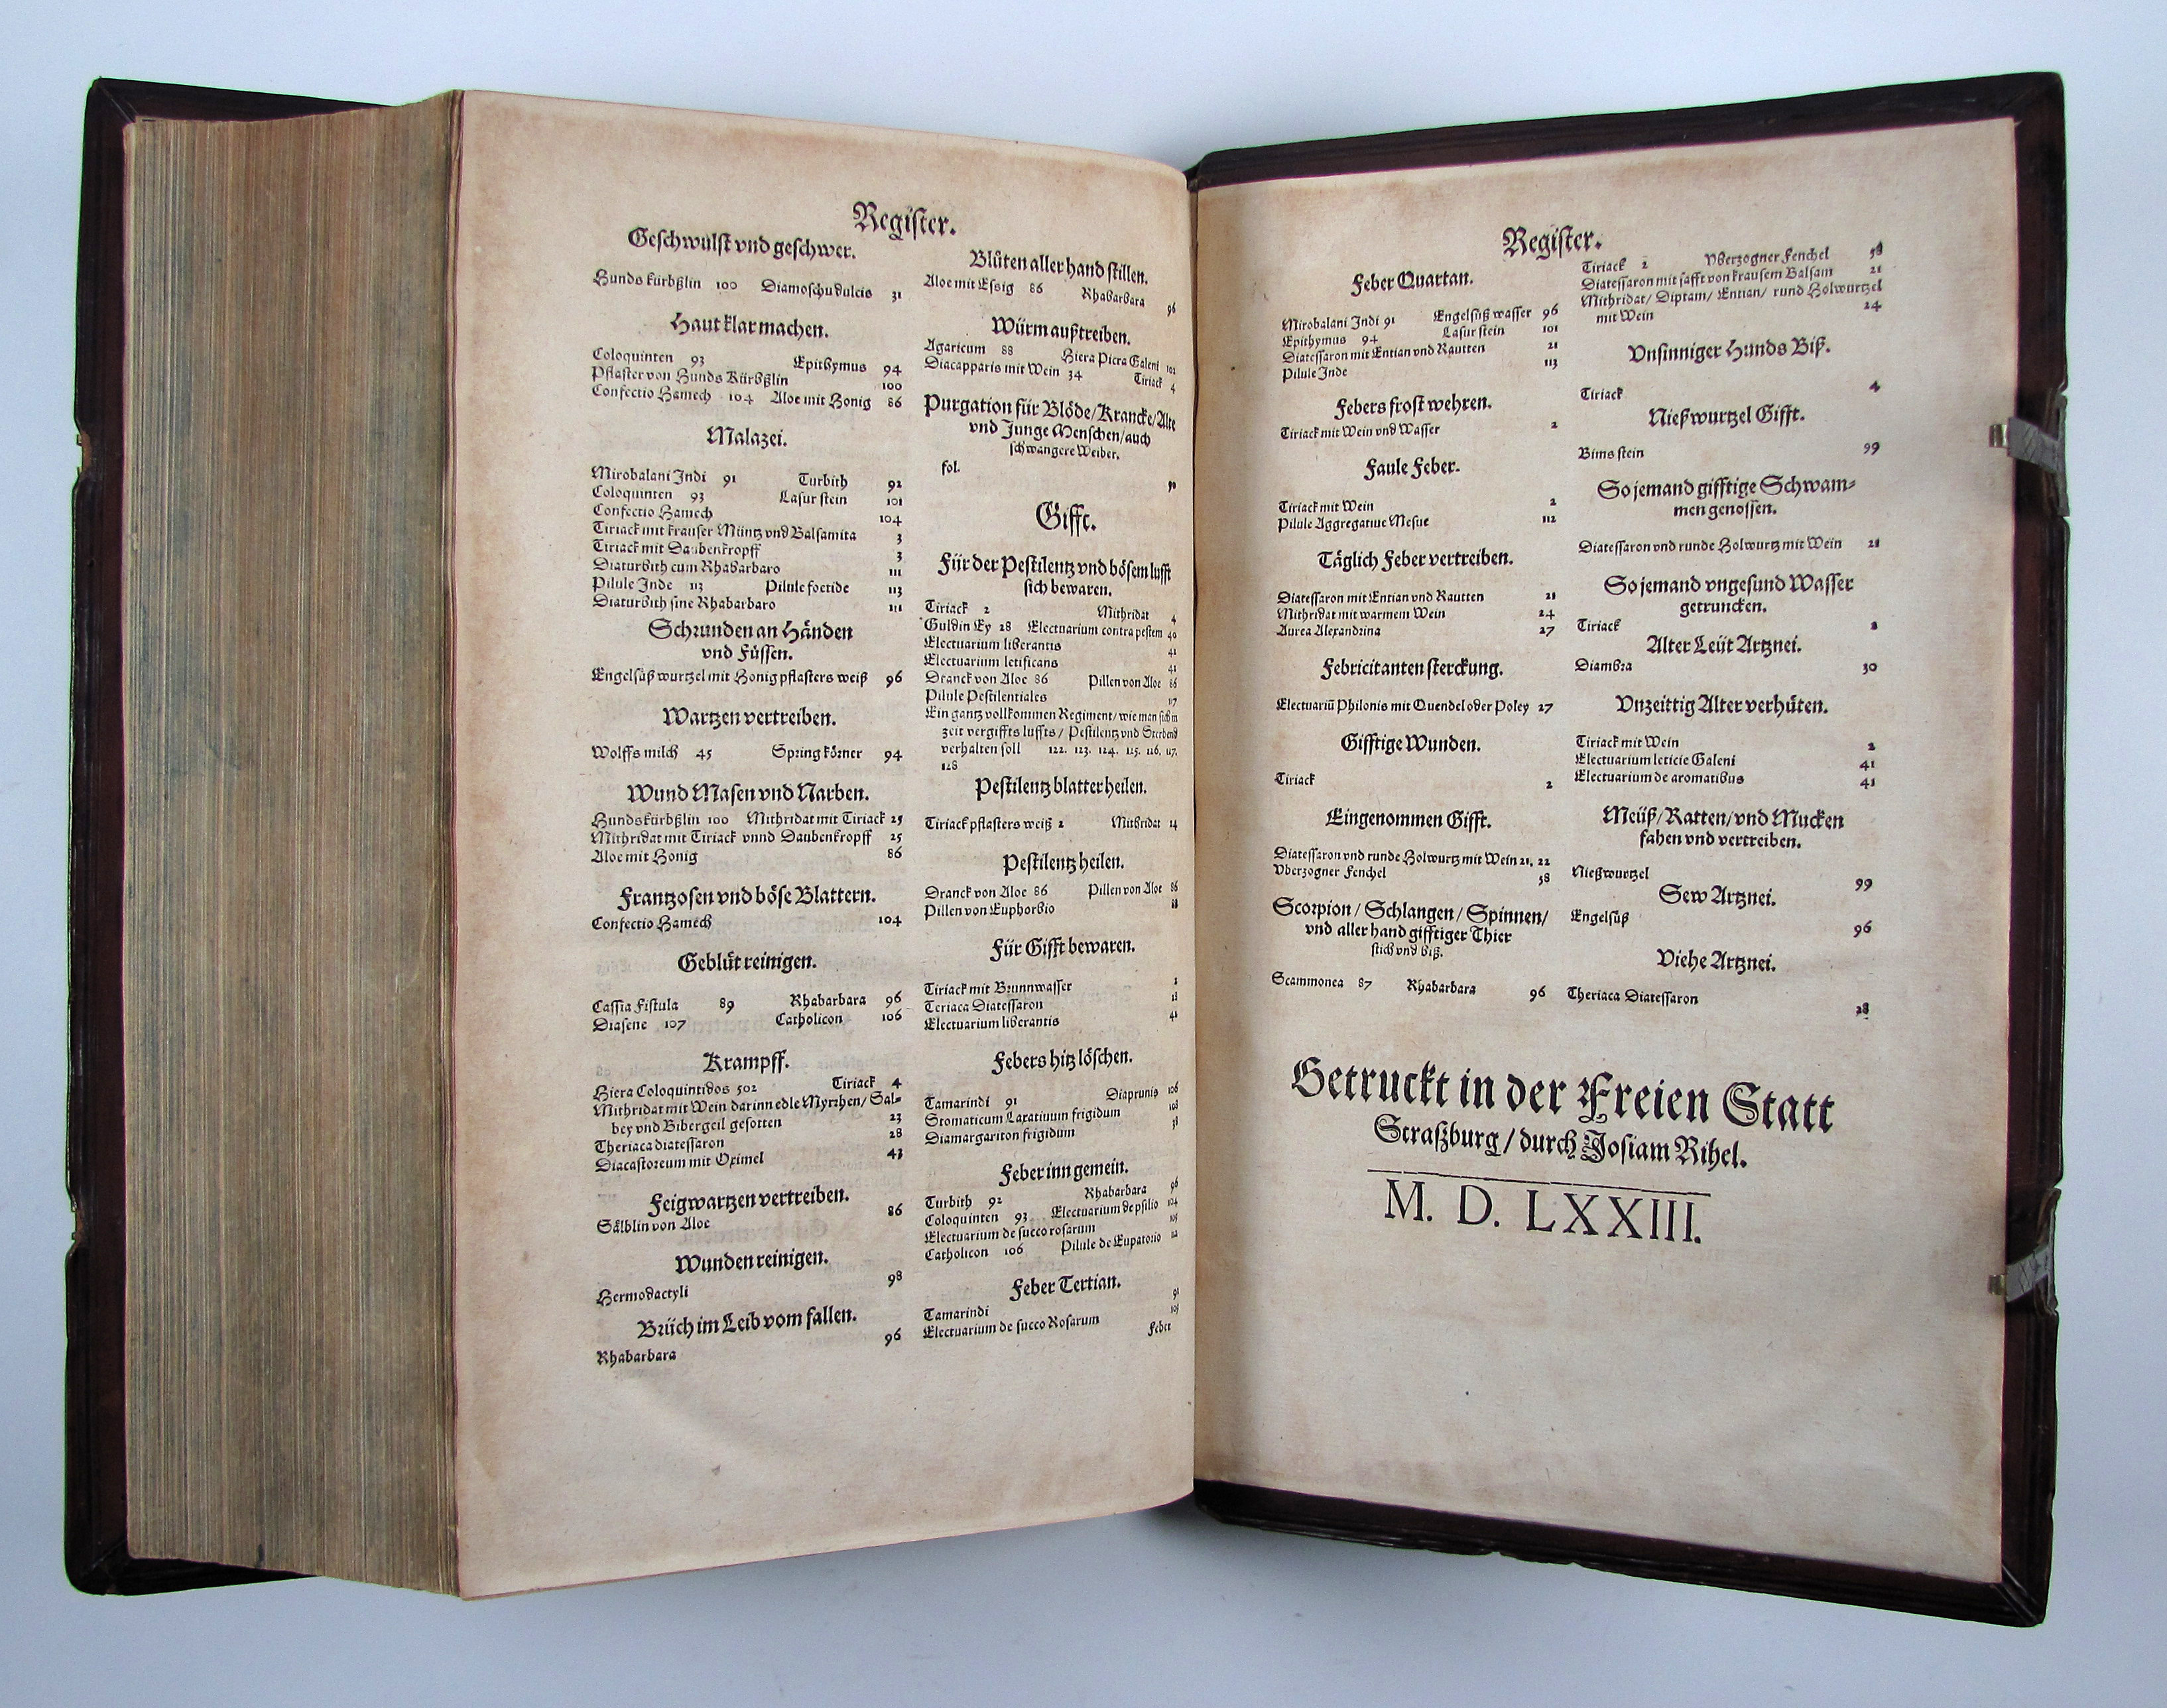 Register.
Geschwulst vnd geschwer.
Hunds kürbßlin 100 Diamoschu dulcis 31
Haut klar machen.
Coloquinten 93 Epithymus 94
Pflaster von Hunds Kürbßlin 100
Confectio Hamech 104 Aloe mit Honig 86
Malazei.
Mirobalani Indi 91 Turbith 92
Coloquinten 93 Lasur stein 101
Confectio Hamech 104
Tiriack mit krauser Müntz vnd Balsamita 3
Tiriack mit Daubenkropff 3
Diaturbith cum Rhabarbaro 111
Pilule Inde 113 Pilule foetide 113
Diaturbith sine Rhabarbaro 111
Schrunden an Händen
vnd Füssen.
Engelsüß wurtzel mit Honig pflasters weiß 96
Wartzen vertreiben.
Wolffs milch 45 Spring körner 94
Wund Masen vnd Narben.
Hundskürbßlin 100 Mithridat mit Tiriack 25
Mithridat mit Tiriack vnnd Daubenkropff 25
Aloe mit Honig 86
Frantzosen vnd böse Blattern.
Confectio Hamech 104
Geblüt reinigen.
Cassia Fistula 89 Rhabarbara 96
Diasene 107 Catholicon 106
Krampff.
Hiera Coloquintidos 502 Tiriack 4
Mithridat mit Wein darinn edle Myrrhen/ Sal=
bey vnd Bibergeil gesotten 23
Theriaca diatessaron 28
Diacastoreum mit Oximel 43
Feigwartzen vertreiben.
Sälblin von Aloe 86
Wunden reinigen.
Hermodactyli 98
Brüch im Leib vom fallen.
Rhabarbara 96
Blüten aller hand stillen.
Aloe mit Essig 86 Rhabarbara 96
Würm außtreiben.
Agaricum 88 Hiera Picra Galeni 102
Diacapparis mit Wein 34 Tiriack 4
Purgation für Blöde/ Krancke/ Alte
vnd Junge Menschen/ auch
schwangere Weiber.
fol.
Gifft.
Für der Pestilentz vnd bösem lufft
sich bewaren.
Tiriack 2 Mithridat 4
Guldin Ey 28 Electuarium contra pestem 40
Electuarium liberantis 41
Electuarium letificans 41
Dranck von Aloe 86 Pillen von Aloe 86
Pilule Pestilentiales 117
Ein gantz vollkommen Regiment/ wie man sich in
zeit vergiffts luffts/ Pestilentz vnd Sterbend
verhalten soll 122. 123. 124. 125. 126. 127.
128
Pestilentz blatter heilen.
Tiriack pflasters weiß 2 Mithridat 24
Pestilentz heilen.
Dranck von Aloe 86 Pillen von Aloe 86
Pillen von Euphorbio 88
Für Gifft bewaren.
Tiriack mit Brunnwasser 2
Teriaca Diatessaron 21
Electuarium liberantis 41
Febers hitz löschen.
Tamarindi 91 Diaprunis 106
Stomaticum Laxatiuum frigidum 108
Diamargariton frigidum 38
Feber inn gemein.
Turbith 92 Rhabarbara 96
Coloquinten 93 Electuarium de psilio 104
Electuarium de succo rosarum 105
Catholicon 106 Pilule de Eupatorio 112
Feber Tertian.
Tamarindi 91
Electuarium de succo Rosarum 105
Feber
Register.
Feber Quartan.
Mirobalani Indi 91 Engelsüß wasser 96
Epithymus 94 Lasur stein 101
Diatessaron mit Entian vnd Rautten 21
Pilule Inde 113
Febers frost wehren.
Tiriack mit Wein vnd Wasser 2
Faule Feber.
Tiriack mit Wein 2
Pilule Aggregatiue Mesue 112
Täglich Feber vertreiben.
Diatessaron mit Entian vnd Rautten 21
Mithridat mit warmem Wein 24
Aurea Alexandrina 27
Febricitanten sterckung.
Electuariū Philonis mit Quendel oder Poley 27
Gifftige Wunden.
Tiriack 2
Eingenommen Gifft.
Diatessaron vnd runde Holwurtz mit Wein 21. 22
Vberzogner Fenchel 58
Scorpion/ Schlangen/ Spinnen/
vnd aller hand gifftiger Thier
stich vnd Biß.
Scammonea 87 Rhabarbara 96
Tiriack 2 Vberzogner Fenchel 58
Diatessaron mit safft von krausem Balsam 21
Mithridat/ Diptam/ Entian/ rund Holwurtzel
mit Wein 24
Vnsinniger Hunds Biß.
Tiriack 4
Nießwurtzel Gifft.
Bims stein 99
So jemand gifftige Schwam=
men genossen.
Diatessaron vnd runde Holwurtz mit Wein 21
So jemand vngesund Wasser
getruncken.
Tiriack 2
Alter Leüt Artznei.
Diambra 30
Vnzeittig Alter verhüten.
Tiriack mit Wein 2
Electuarium leticie Galeni 41
Electuarium de aromatibus 41
Meüß/ Ratten/ vnd Mucken
fahen vnd vertreiben.
Nießwurtzel 99
Sew Artznei.
Engelsüß 96
Viehe Artznei.
Theriaca Diatessaron 28
Getruckt in der Freien Statt
Straßburg/ durch Josiam Rihel.
M. D. LXXIII.